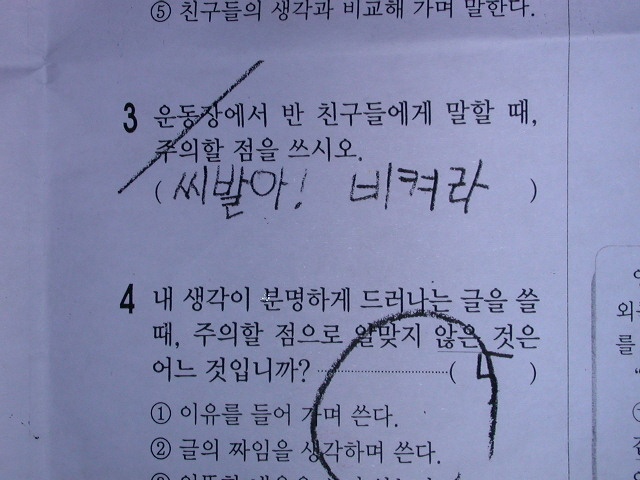 ⑤ 친구들의 생각과 비교해 가며 말한다.
3 운동장에서 반 친구들에게 말할 때,
주의할 점을 쓰시오.
( 씨발아! 비켜라 )
4 내 생각이 분명하게 드러나는 글을 쓸
때, 주의할 점으로 알맞지 않은 것은
어느 것입니까? ( 5 )
① 이유를 들어 가며 쓴다.
② 글의 짜임을 생각하며 쓴다.
외
를